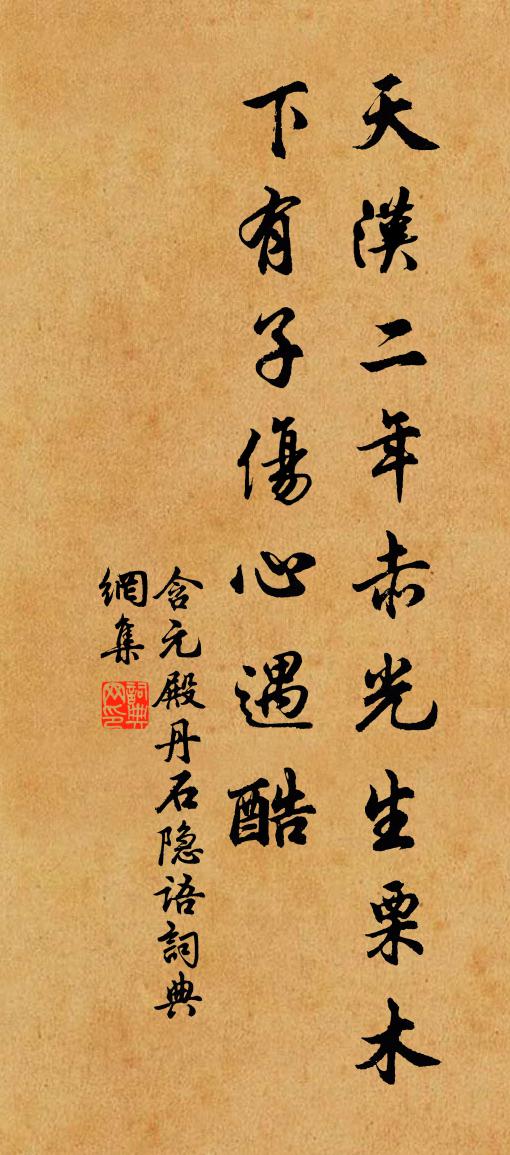 天漢二年赤光生栗木
下有子傷心遇酷
含元殿丹石隐语詞典
網集
詞典
网印